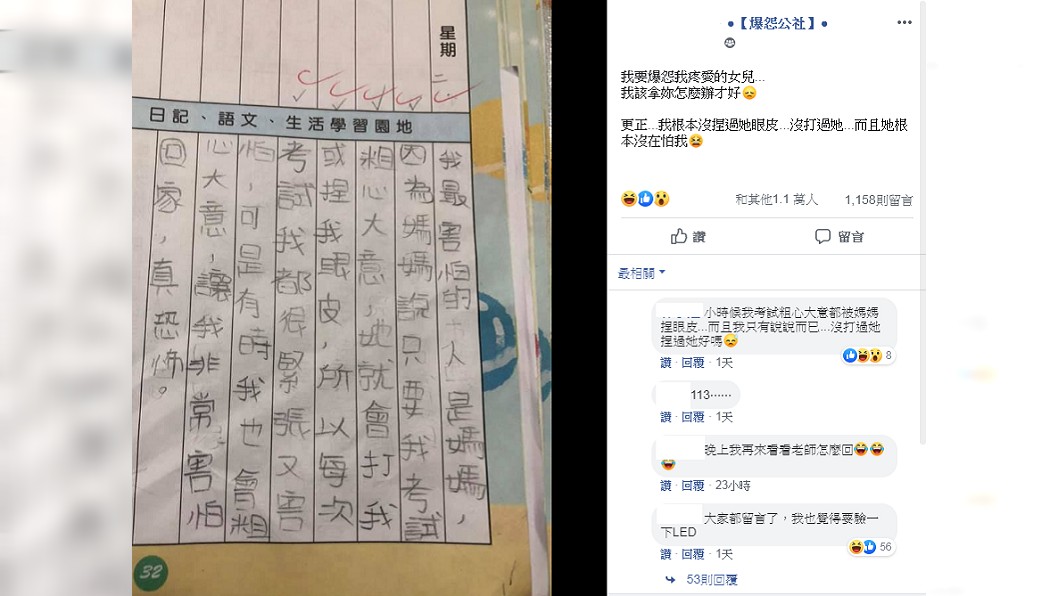 星期二
日記、語文、生活學習園地
我最害怕的「人」是媽媽，
因為媽媽說只要我考試
粗心大意，她就會打我
或捏我眼皮，所以每次
考試我都很緊張又害
怕，可是有時我也會粗
心大意，讓我非常害怕
回家，真恐怖。
32
•【爆怨公社】•
我要爆怨我疼愛的女兒...
我該拿妳怎麼辦才好😞
更正...我根本沒捏過她眼皮...沒打過她...而且她根
本沒在怕我😫
和其他1.1 萬人 1,158則留言
讚 留言
最相關
小時候我考試粗心大意都被媽媽
捏眼皮...而且我只有說說而已...沒打過她
捏過她好嗎😞
8
讚 · 回覆 · 1天
113······
讚 · 回覆 · 1天
晚上我再來看看老師怎麼回😂😂
😂
讚 · 回覆 · 23小時
大家都留言了，我也覺得要驗一
下LED
56
讚 · 回覆 · 1天
53則回覆